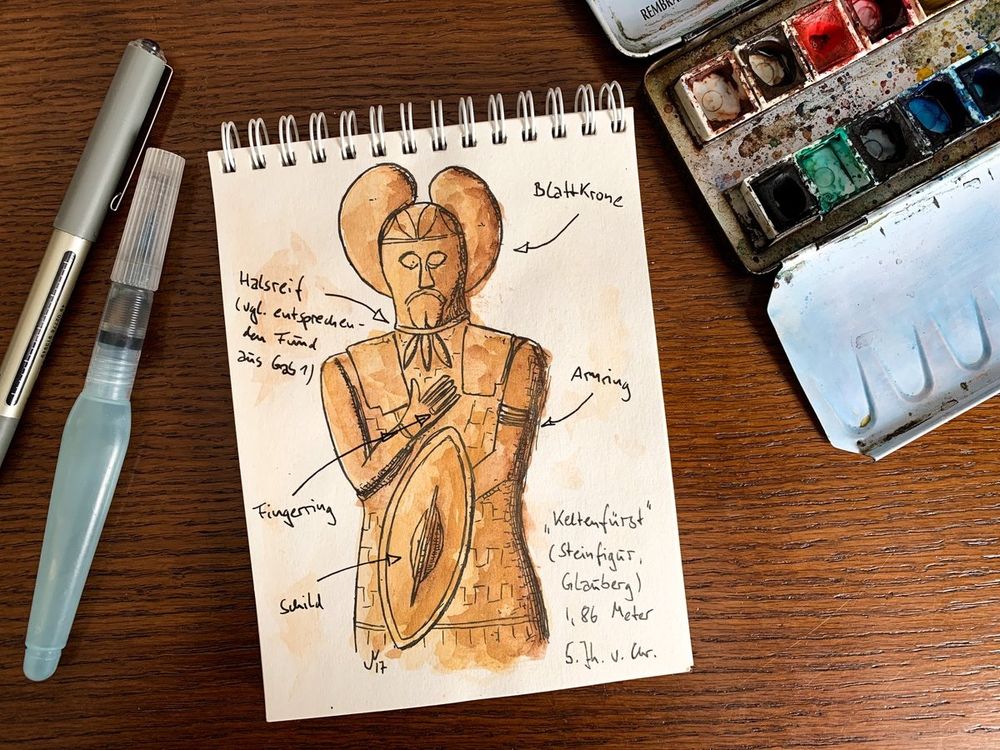 REMBRA
Blattkrone
Halsreif
(vgl. entsprechen-
den Fund
aus Grab 1)
Armring
Fingerring
Schild
„Keltenfürst"
(Steinfigur,
Glauberg)
1,86 Meter
5. Jh. v. Chr.
17